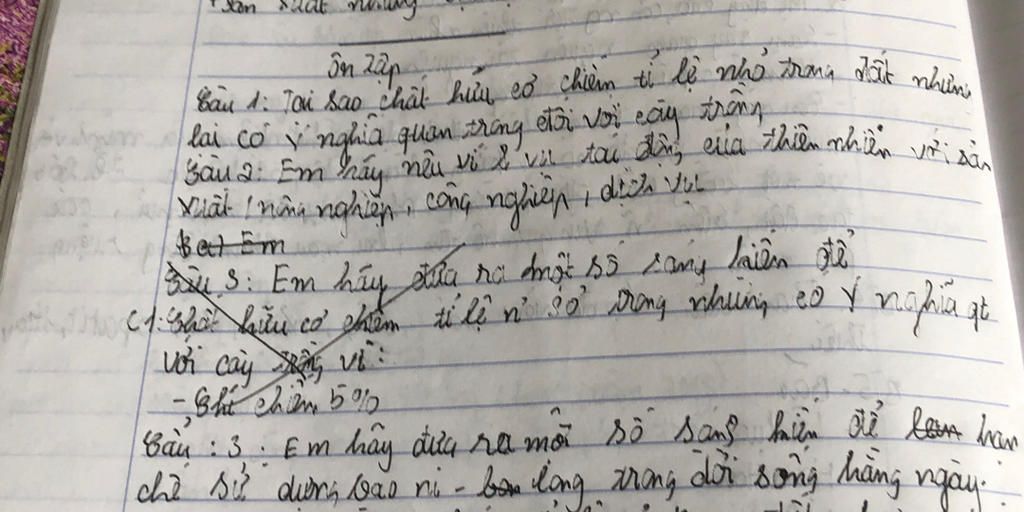 + sản xuất nhưng
ôn tập
Câu 1: Tại sao chất hữu cơ chiếm tỉ lệ nhỏ trong đất nhưng
lại có ý nghĩa quan trọng đối với cây trồng
Câu 2: Em hãy nêu ví dụ tác động của thiên nhiên với sản
xuất (nông nghiệp, công nghiệp, dịch vụ)
Em
Câu 3: Em hãy đưa ra một số sáng kiến để
C1: Chất hữu cơ chiếm tỉ lệ trong nhưng có ý nghĩa qt
với cây trồng vì:
- Chỉ chiếm 5%
Câu: 3: Em hãy đưa ra một số sáng kiến để hạn
chế sử dụng bao ni-lông trong đời sống hằng ngày.